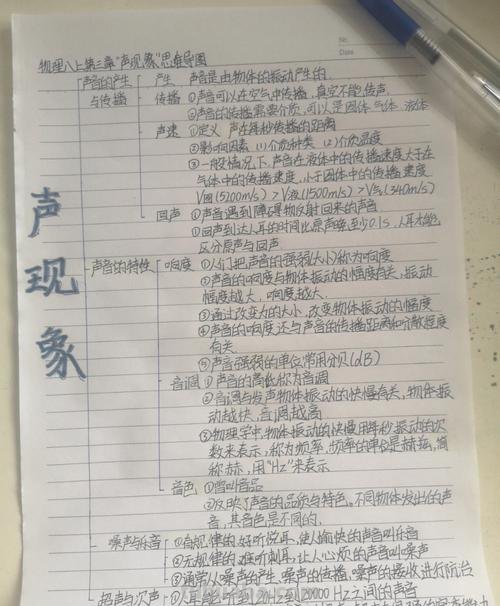 No:
Date
物理八上第三章"声现象"思维导图
声音的产生 产生 声音是由物体的振动产生的.
与传播 传播 ①声音可以在空气中传播,真空不能传声.
②声音的传播需要介质,可以是固体 气体 液体
声速 ①定义 声在每秒传播的距离
②影响因素 (1)介质种类 (2)介质温度
③一般情况下,声音在液体中的传播速度大于在
气体中的传播速度,小于固体中的传播速度
V固(5200m/s)>V液(1500m/s)>V气(340m/s)
回声 ①声音遇到障碍物反射回来的声音
②回声到达人耳的时间比原声晚至少0.1s,人耳才能
区分原声与回声
声现象
声音的特性 响度 ①人们把声音的强弱(大小)称为响度
②声音的响度与物体振动的幅度有关,振动
幅度越大,响度越大.
③通过改变力的大小,改变物体振动的幅度
④声音的响度还与声音的传播距离和分散程度
有关
⑤声音强弱的单位,常用分贝(dB)
音调 ①声音的高低称为音调
②音调与发声物体振动的快慢有关,物体振
动越快,音调越高
③物理学中,物体振动的快慢用每秒振动的次
数来表示,称为频率,频率的单位是赫兹,简
称赫,用"Hz"来表示
音色 ①曾叫音品
②反映了声音的品质与特色.不同物体发出的声
音,其音色是不同的,
噪声与乐音 ①有规律的 好听悦耳,使人愉快的声音叫乐音
②无规律的 难听刺耳,让人心烦的声音叫噪声
③通常从噪声的产生,噪声的传播,噪声的接收进行防治
超声与次声 ①人耳能听到20Hz到20000Hz之间的声音